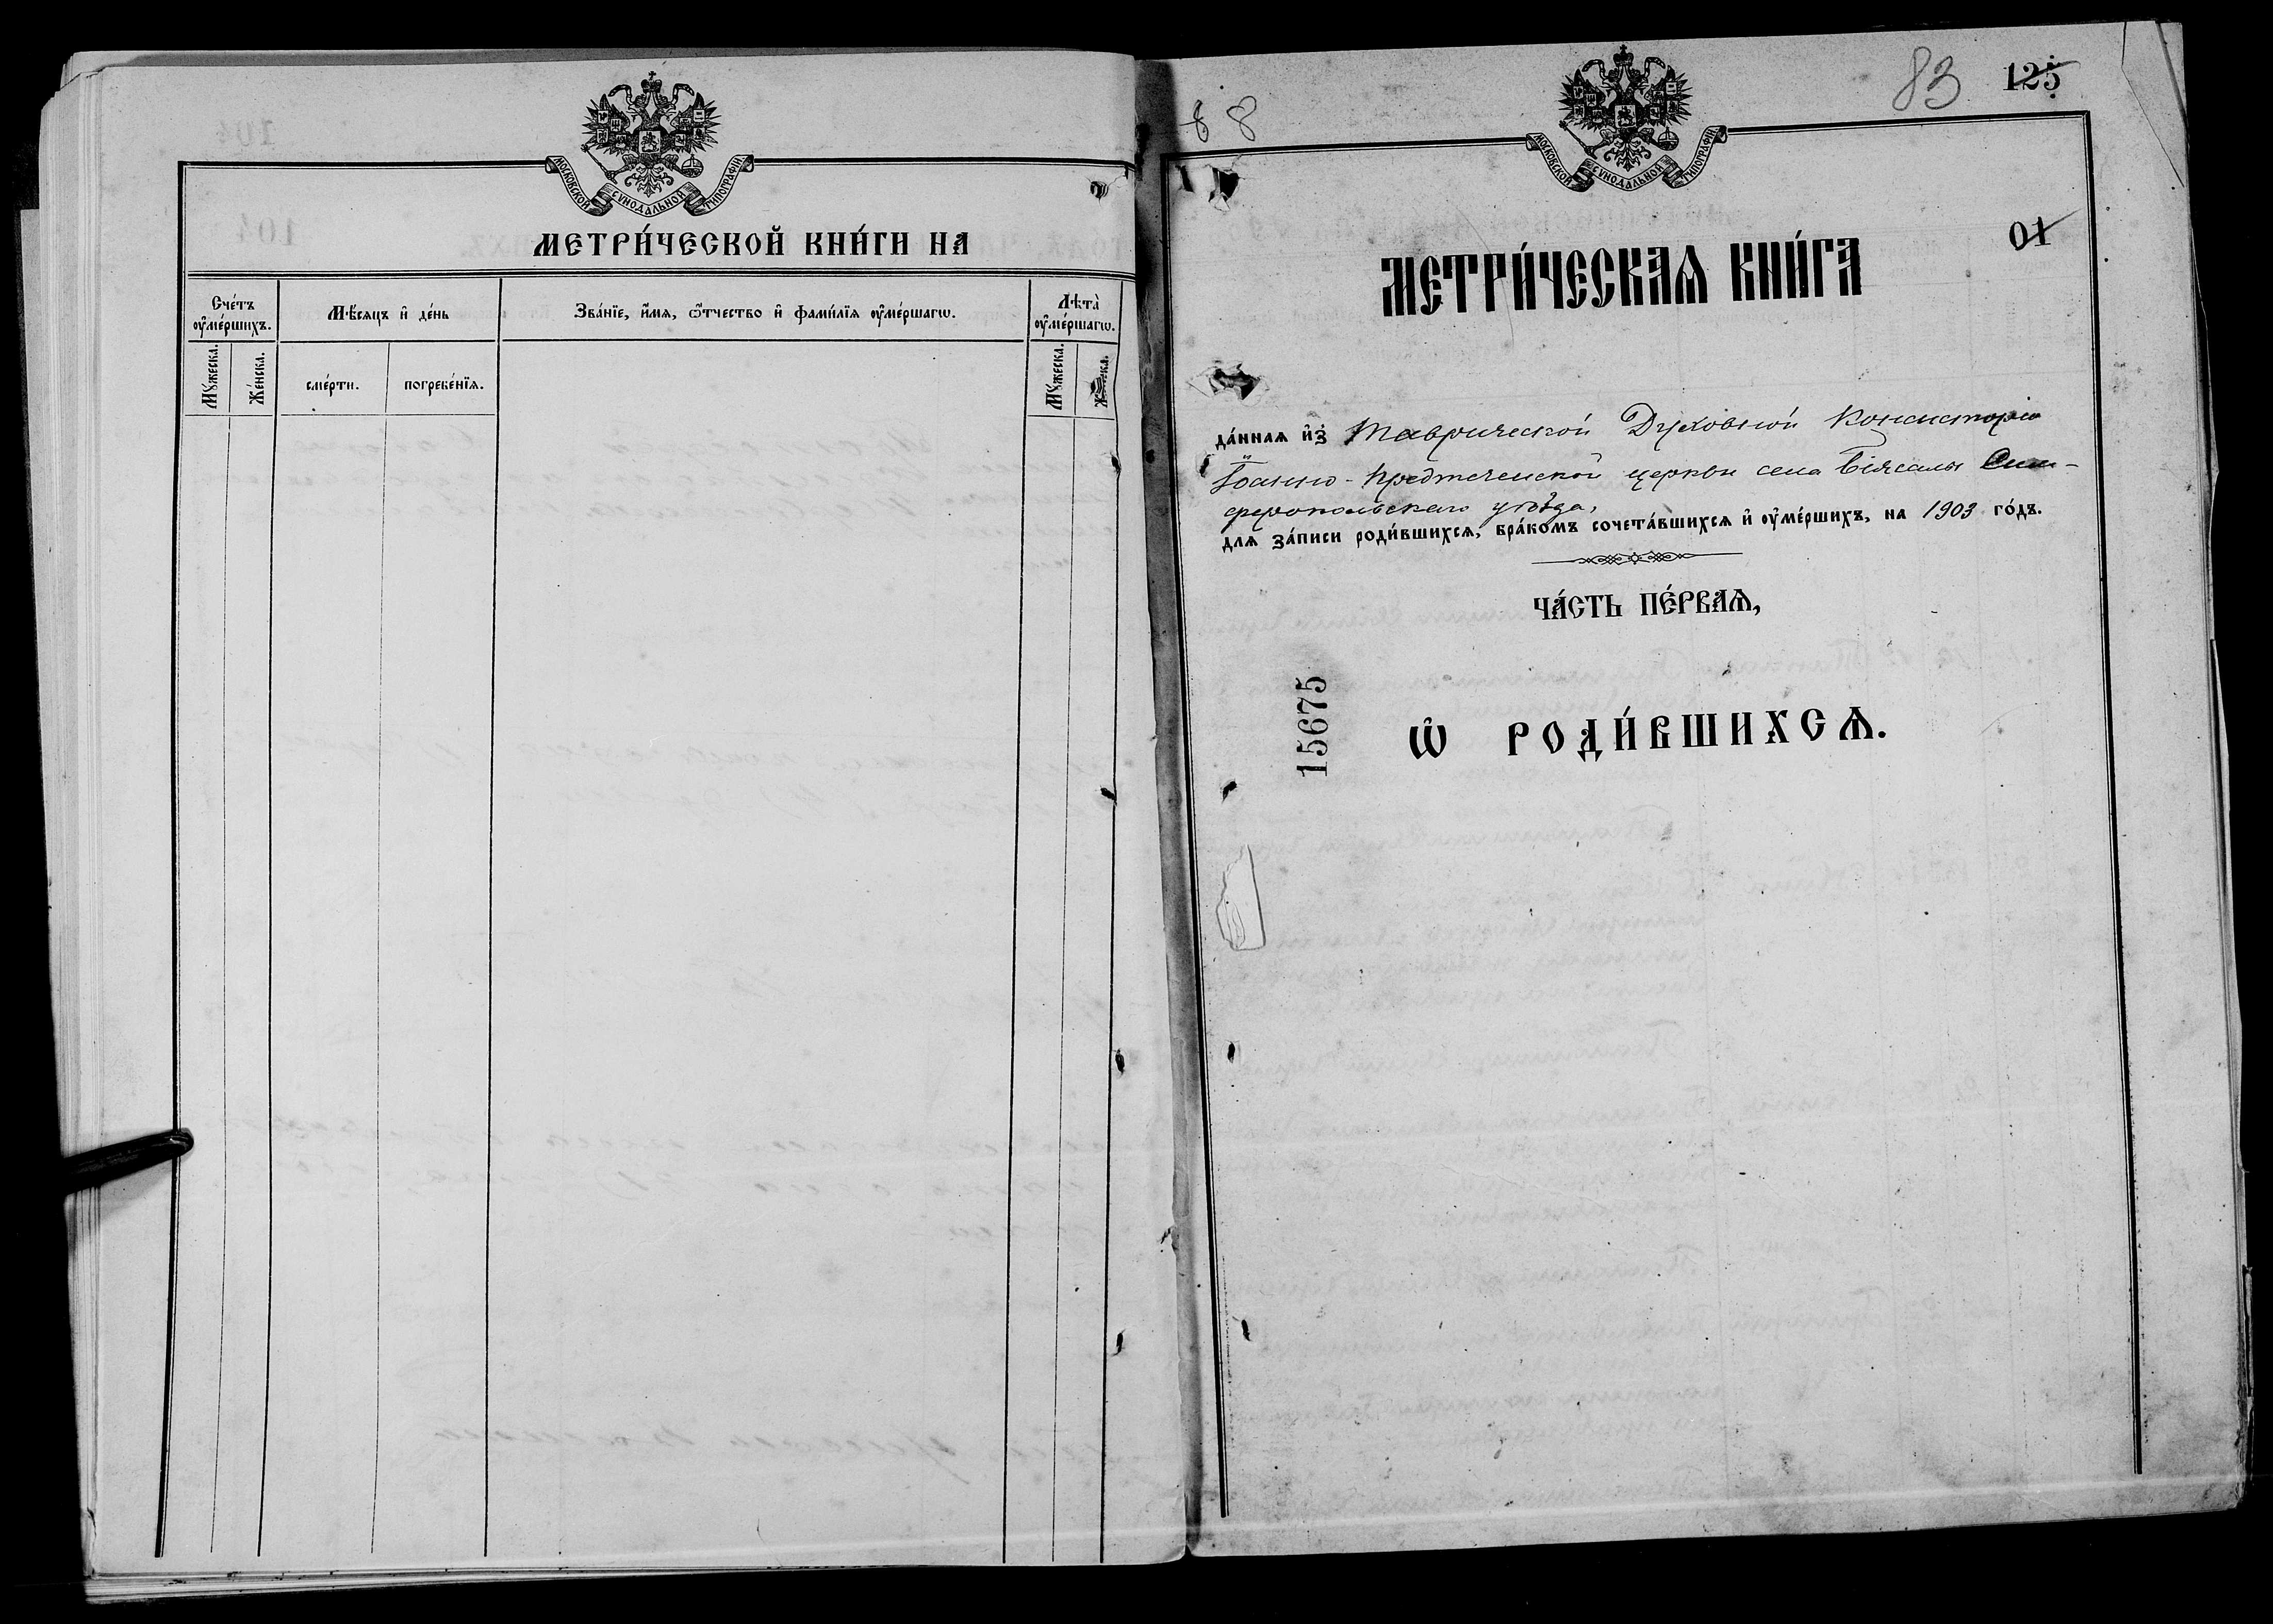 МОСКОВСКОЙ СѴНОДАЛЬНОЙ ТИПОГРАФІИ
МЕТРИ́ЧЕСКОЙ КНИ́ГИ НА
Сче́тъ ᲂу҆ме́ршихъ.
Мѣ́сяцъ и҆ де́нь
Зва́нїе, и҆́мѧ, ѻ҆́тчество и҆ фами́лїѧ ᲂу҆ме́ршагѡ.
Лѣ́та ᲂу҆ме́ршагѡ.
Мꙋ́жеска.
Же́нска.
сме́рти.
погребе́нїѧ.
Мꙋ́жеска.
Же́нска.
88
83 125
МОСКОВСКОЙ СѴНОДАЛЬНОЙ ТИПОГРАФІИ
01
МЕТРИ́ЧЕСКАѦ КНИ́ГА
да́ннаѧ и҆з̾ Таврической Духовной Консисторіи
Іоанно-Предтеченской церкви села Біясалы Сим-
феропольскаго уѣзда,
длѧ за́писи роди́вшихсѧ, бра́комъ сочета́вшихсѧ и҆ ᲂу҆ме́ршихъ, на 1903 го́дъ.
ЧА́СТЬ ПЕ́РВАѦ,
Ѡ҆ РОДИ́ВШИХСѦ.
15675